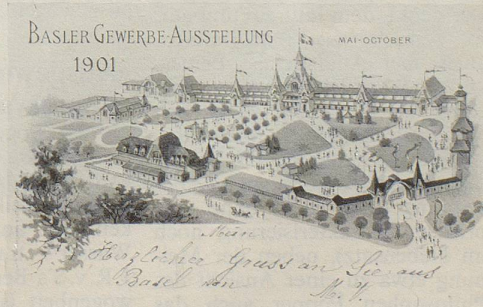 BASLER GEWERBE-AUSSTELLUNG
MAI-OCTOBER
1901
Mein
Herzlicher Gruss an Sie aus
Basel von M. V.